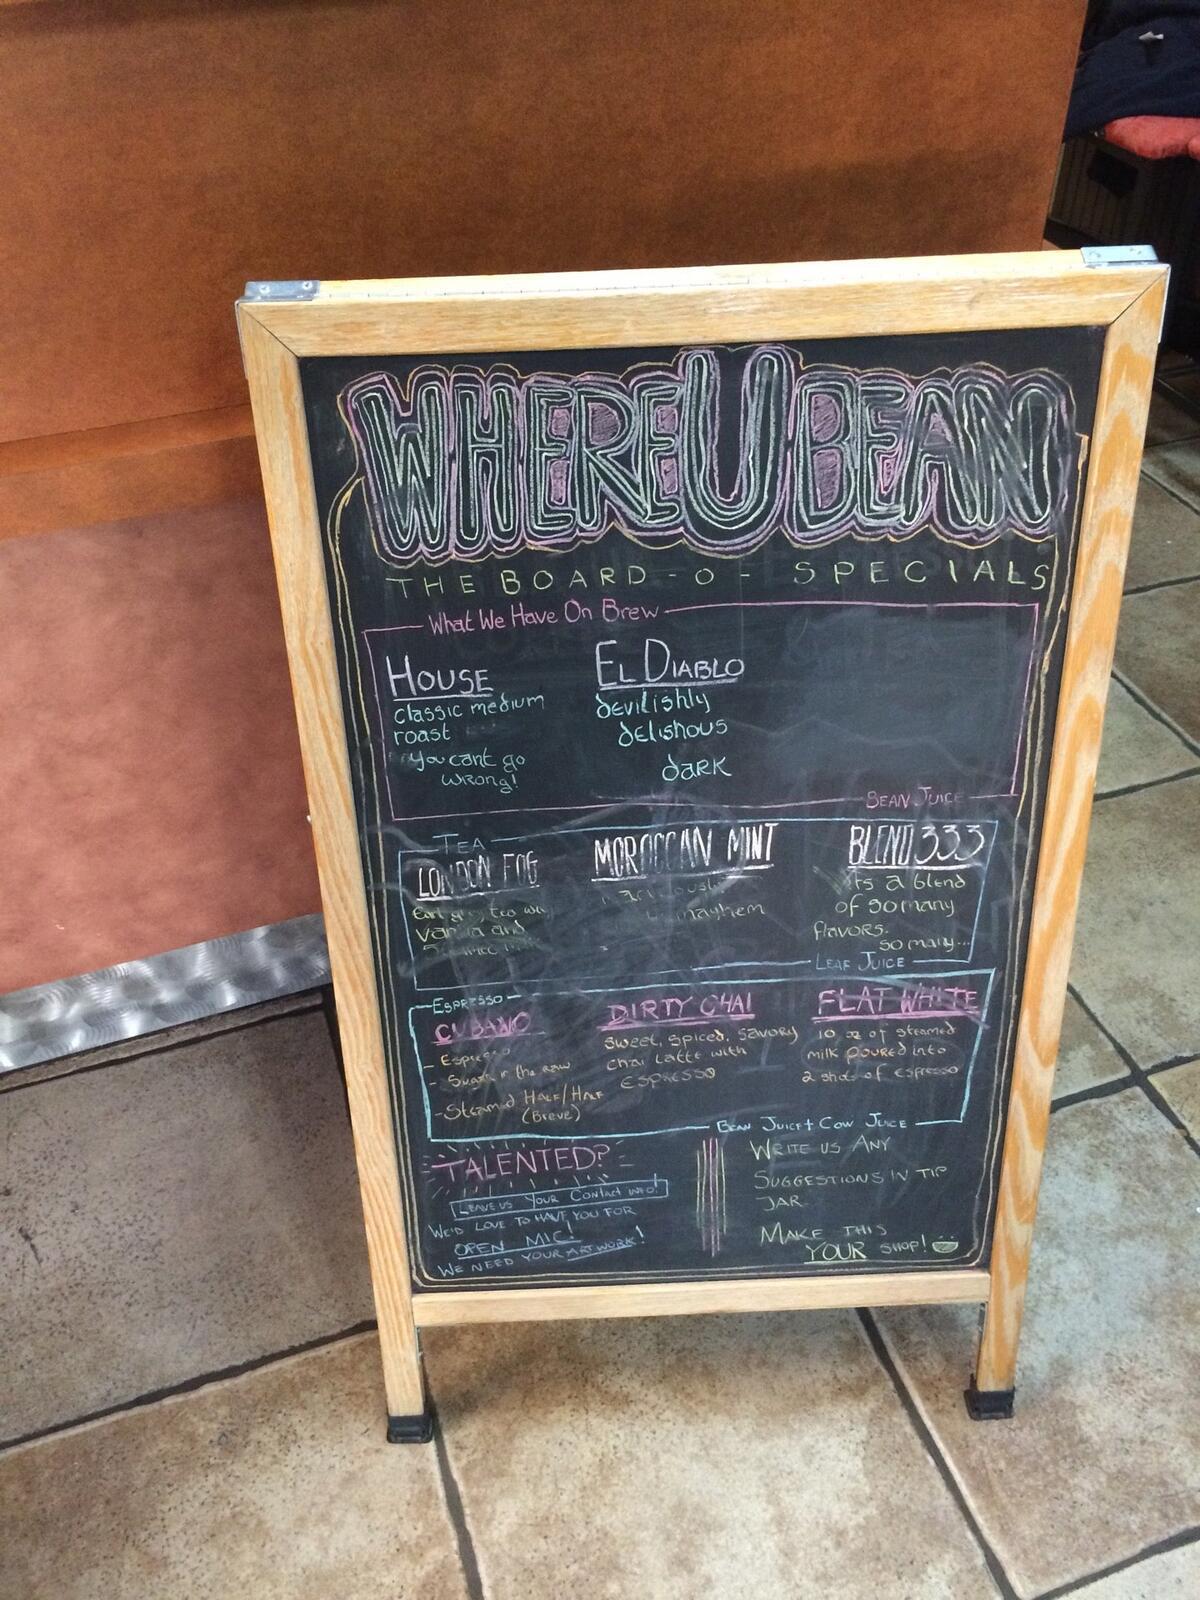 WHERE U BEAN
THE BOARD-O-SPECIALS
What We Have On Brew
HOUSE
classic medium
roast
you cant go
wrong!
EL DIABLO
devilishly
delishous
dark
BEAN JUICE
TEA
LONDON FOG
Earl grey tea
vanilla and
MOROCCAN MINT
mayhem
BLEND 333
its a blend
of so many
flavors.
so many...
LEAF JUICE
ESPRESSO
CUBANO
- Espresso
- in the raw
- Steamed HALF/HALF
(Breve)
DIRTY CHAI
sweet, spiced, savory
chai latte with
ESPRESSO
FLAT WHITE
10 oz of steamed
milk poured into
2 shots of espresso
BEAN JUICE + COW JUICE
TALENTED?
LEAVE US YOUR CONTACT INFO!
WE'D LOVE TO HAVE YOU FOR
OPEN MIC!
WE NEED YOUR ARTWORK!
WRITE US ANY
SUGGESTIONS IN TIP
JAR.
MAKE THIS
YOUR SHOP!